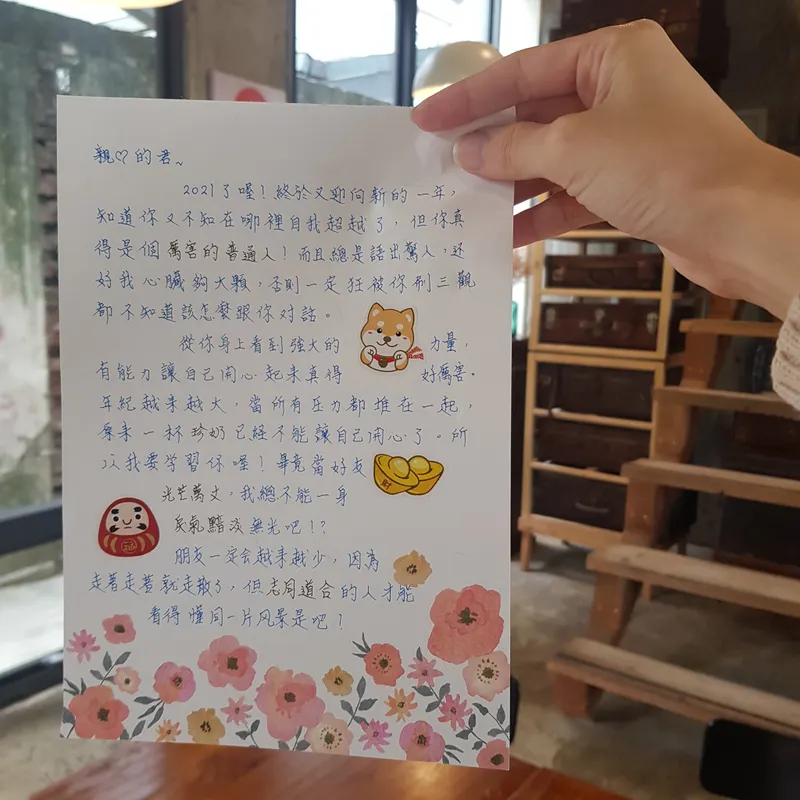 親♡的君~
2021了喔！終於又迎向新的一年，
知道你又不知在哪裡自我超越了，但你真
得是個厲害的普通人！而且總是話出驚人，还
好我心臟夠大顆，否則一定狂被你刷三觀
都不知道該怎麼跟你对話。
從你身上看到強大的 力量，
有能力讓自己開心起來真得 好厲害。
年紀越来越大，當所有压力都堆在一起，
原来一杯珍奶已經不能讓自己開心了。所
以我要学習你喔！畢竟當好友
財
光芒萬丈，我總不能一身
灰氣黯淡無光吧！？
朋友一定会越来越少，因為
走著走著就走散了，但志同道合的人才能
看得懂同一片风景是吧！